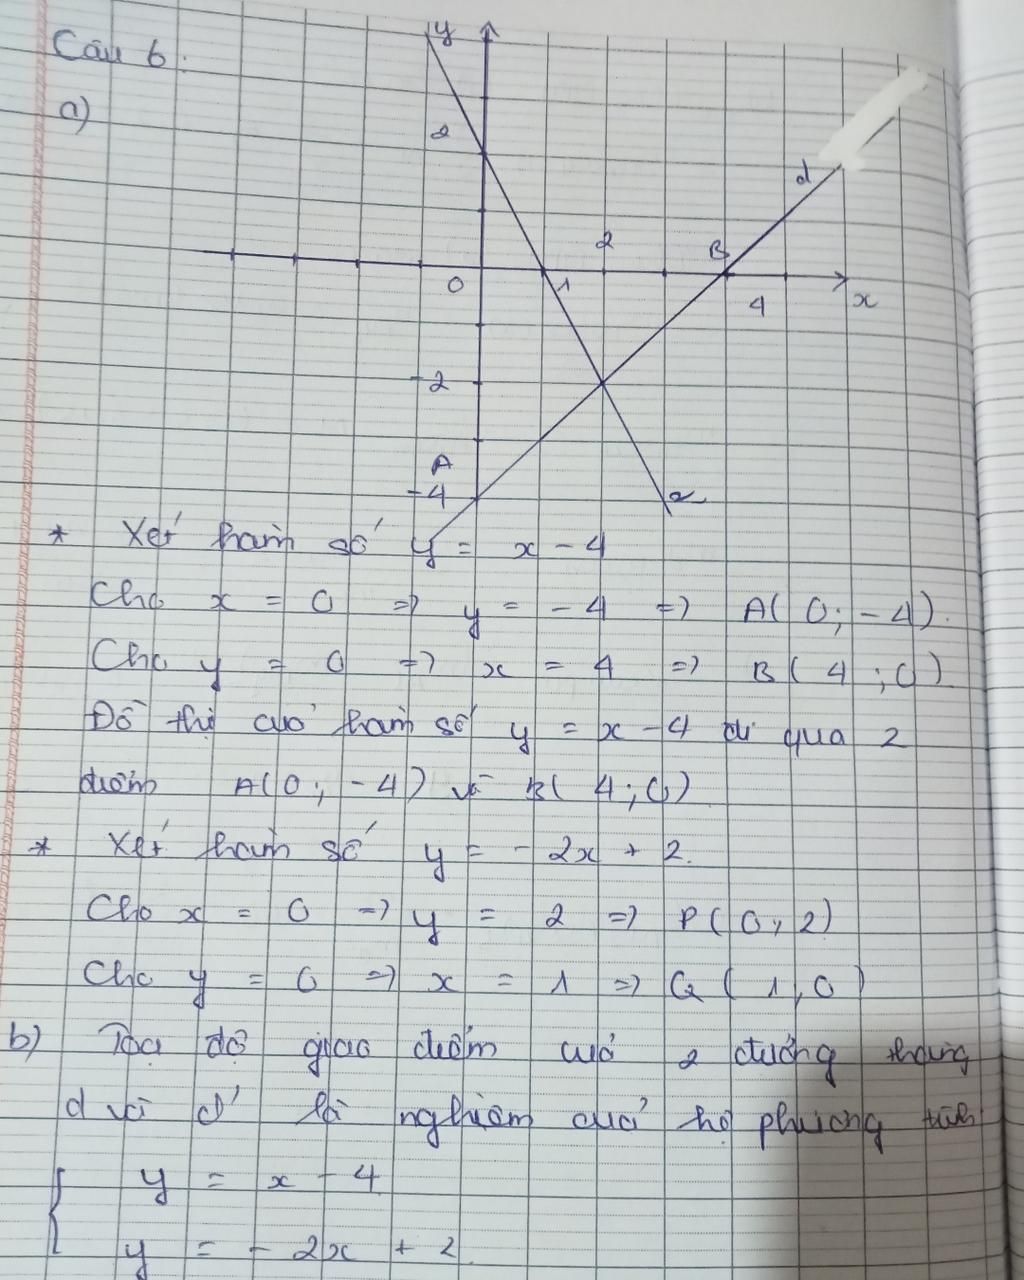 Câu 6.
a)
y
2
d
2
B
0
1
4
x
-2
A
-4
* Xét hàm số y = x - 4
Cho x = 0 => y = -4 => A( 0; -4).
Cho y = 0 => x = 4 => B( 4; 0)
Đồ thị của hàm số y = x - 4 đi qua 2
điểm A(0; -4) và B( 4; 0)
* Xét hàm số y = - 2x + 2.
Cho x = 0 => y = 2 => P( 0; 2)
Cho y = 0 => x = 1 => Q( 1; 0)
b) Tọa độ giao điểm của 2 đường thẳng
d và d' là nghiệm của hệ phương trình
y = x - 4
y = - 2x + 2